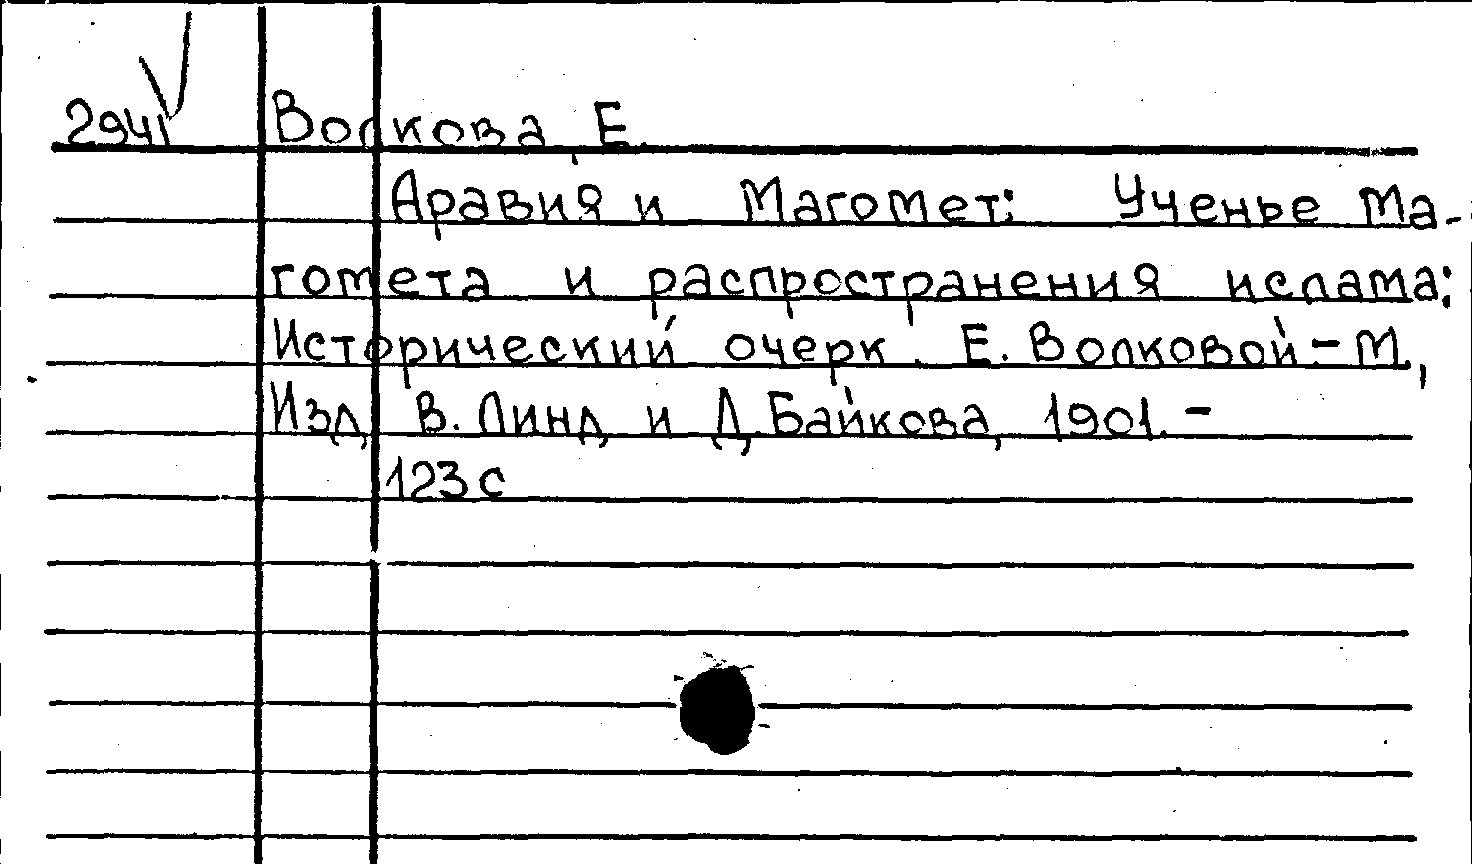 2941 Волкова, Е.
Аравия и Магомет: Ученье Ма-
гомета и распространения ислама:
Исторический очерк. Е. Волковой - М.,
Изд. В. Линд и Д. Байкова, 1901. -
123 с